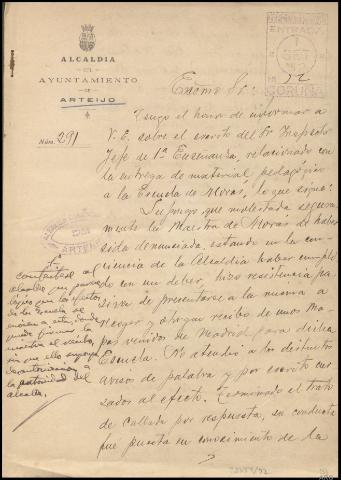 ALCALDIA
DEL
AYUNTAMIENTO
DE
ARTEIJO
Núm. 291
ENTRADA
CORUÑA
Excmo Sr:
Tengo el honor de informar a
V. E. sobre el escrito del Sr Inspector
Jefe de 1ª Enseñanza, relacionado con
la entrega de material pedagógico
a la Escuela de Morás, lo que sigue:
Supongo que molestada segura-
mente la Maestra de Morás de haber
sido denunciada, estando en la con-
ciencia de la Alcaldía haber cumpli-
do con un deber, hizo resistencia pa-
siva de presentarse a la misma a
recoger y otorgar recibo de unos Ma-
pas venidos de Madrid para dicha
Escuela. No atendió a los distintos
avisos de palabra y por escrito cur-
sados al efecto. Terminado el trato
de callada por respuesta, su conducta
fue puesta en conocimiento de la
ARTEIJO
contéstese al
alcalde que para
los efectos
de la Escuela se
a este, donde
puede firmar la
maestra el recibo,
sin que ello
a
la autoridad del
alcalde.